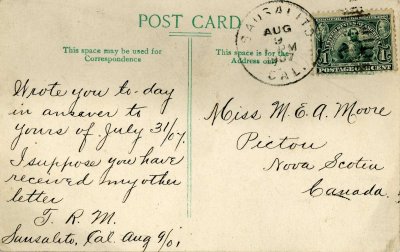 POST CARD
This space may be used for
Correspondence
This space is for the
Address only
SAUSALITO
AUG
9
PM
1907
CAL.
1 POSTAGE ONE CENT 1
Wrote you to-day
in answer to
yours of July 31/07.
I suppose you have
received my other
letter
T. R. M.
Sausalito, Cal. Aug 9/07
Miss M. E. A. Moore
Pictou
Nova Scotia
Canada.